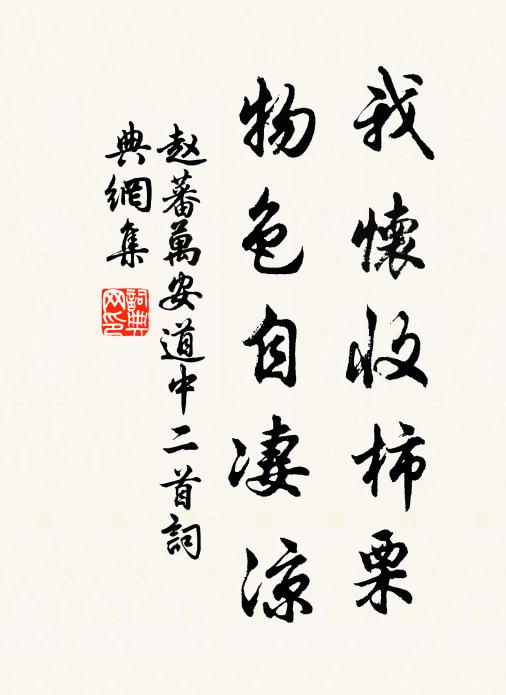 我懷收柿栗
物色自凄涼
赵蕃萬安道中二首詞
典網集
詞典
网印